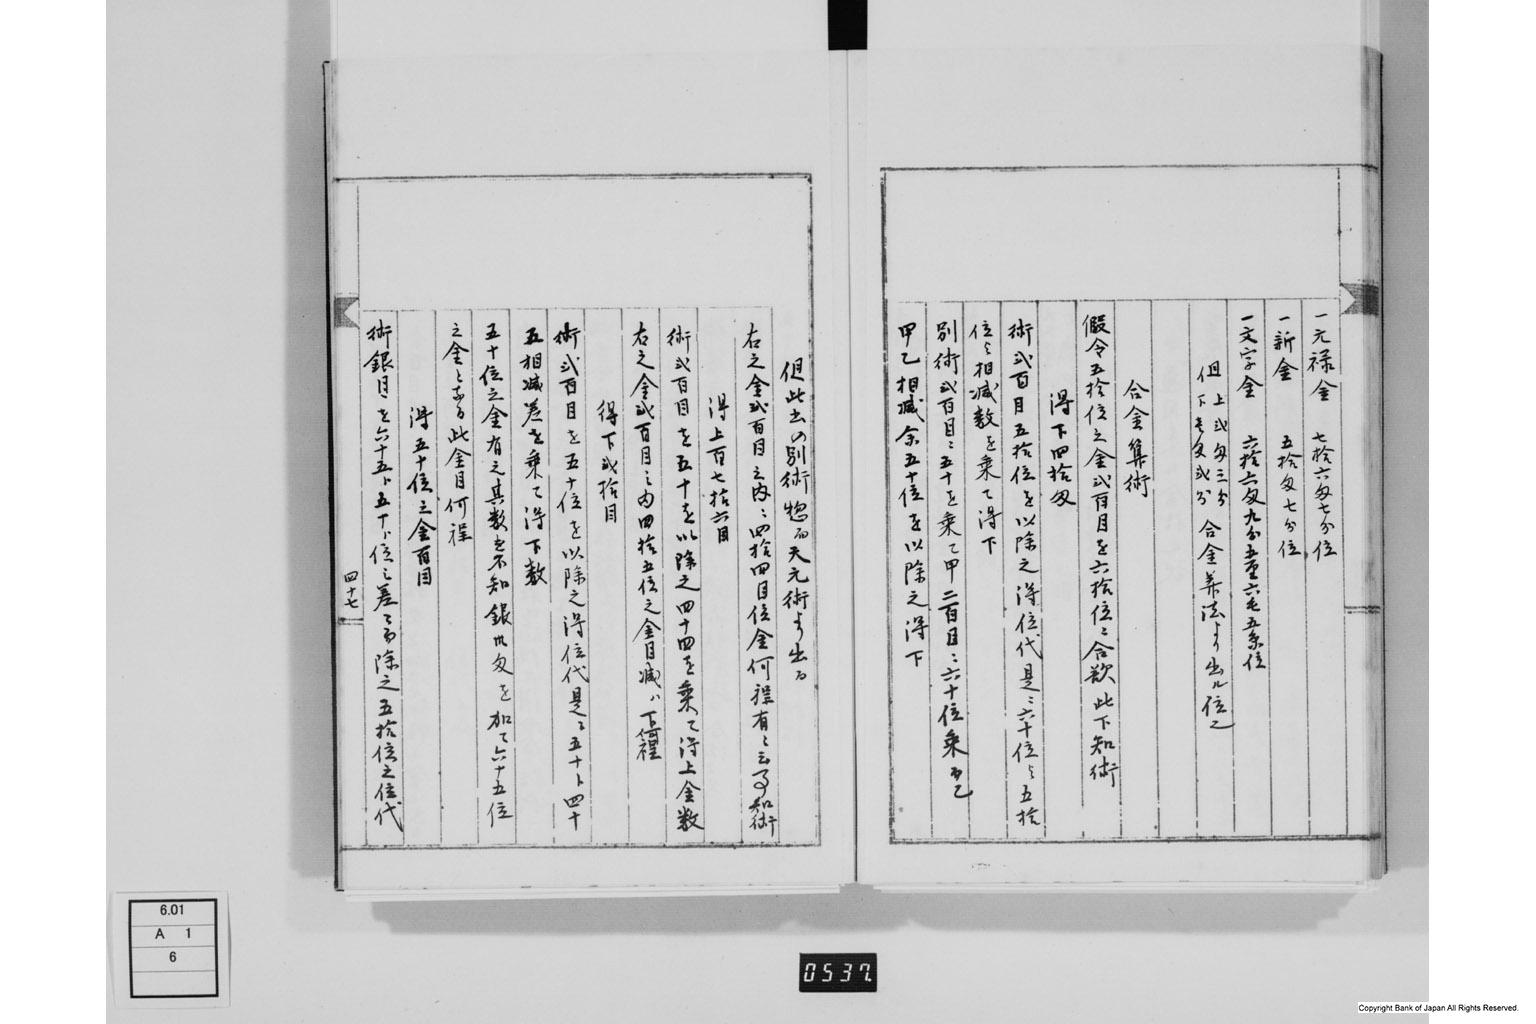 一元禄金　七拾六匁七分位
一新金　五拾匁七分位
一文字金　六拾六匁九分五厘六毛五糸位
但 上弐匁三分
下壱匁弐分　合金算法より出ル位也
合金算術
假令五拾位之金弐百目を六拾位ニ合欲此下知術
得下四拾匁
術弐百目五拾位を以除之得位代是ニ六十位と五拾
位と相減数を乗て得下
別術弐百目ニ五十を乗て甲二百目ニ六十位乗而乙
甲乙相減余五十位を以除之得下
但此出の別術惣而天元術より出る
右之金弐百目之内ニ四拾四目位金何程有ニ云事知術
得上百七拾六目
術弐百目を五十を以除之四十四を乗て得上金数
右之金弐百目之内四拾五位之金目減ハ下何程
得下弐拾目
術弐百目を五十位を以除之得位代是ニ五十ト四十
五相減差を乗て得下数
五十位之金有之其数を不知銀卅匁を加て六十五位
之金となる此金目何程
得五十位之金百目
術銀目を六十五ト五十ト位之差ニ而除之五拾位之位代
四十七
6.01
A 1
6
0537.
Copyright Bank of Japan All Rights Reserved.